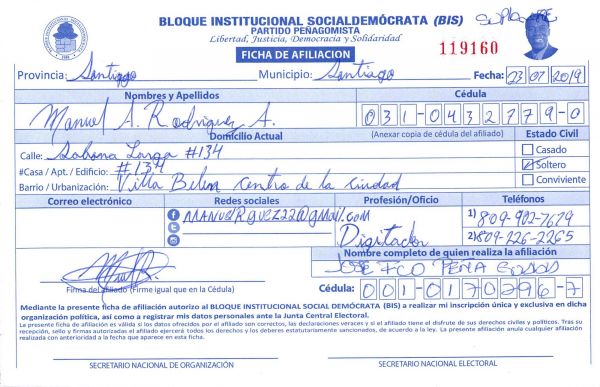 BLOQUE INSTITUCIONAL SOCIALDEMÓCRATA (BIS)
PARTIDO PEÑAGOMISTA
Libertad, Justicia, Democracia y Solidaridad
FICHA DE AFILIACION
119160
Provincia: Santiago Municipio: Santiago Fecha: 23/07/2019
Nombres y Apellidos
Manuel A. Rodriguez A.
Cédula
031-0432779-0
(Anexar copia de cédula del afiliado)
Domicilio Actual
Calle: Sabana Larga #134
#Casa / Apt. / Edificio: #134
Barrio / Urbanización: Villa Belen Centro de la Ciudad
Estado Civil
Casado
Soltero
Conviviente
Correo electrónico
Redes sociales
MANUELRGUEZ22@GMAIL.COM
Profesión/Oficio
Digitador
Teléfonos
1) 809-902-7679
2) 809-226-2265
Firma del afiliado (Firme igual que en la Cédula)
Nombre completo de quien realiza la afiliación
JOSE FCO PEÑA
Cédula: 001-0170296-7
Mediante la presente ficha de afiliación autorizo al BLOQUE INSTITUCIONAL SOCIAL DEMÓCRATA (BIS) a realizar mi inscripción única y exclusiva en dicha
organización política, así como a registrar mis datos personales ante la Junta Central Electoral.
La presente ficha de afiliación es válida si los datos ofrecidos por el afiliado son correctos, las declaraciones veraces y si el afiliado tiene el disfrute de sus derechos civiles y políticos. Tras su
recepción, sello y firmas autorizadas el afiliado ejercerá todos los derechos y los deberes estatutariamente sancionados, de acuerdo a la ley. La presente afiliación anula cualquier afiliación
realizada con anterioridad a la fecha que aparece en esta ficha.
SECRETARIO NACIONAL DE ORGANIZACIÓN
SECRETARIO NACIONAL ELECTORAL